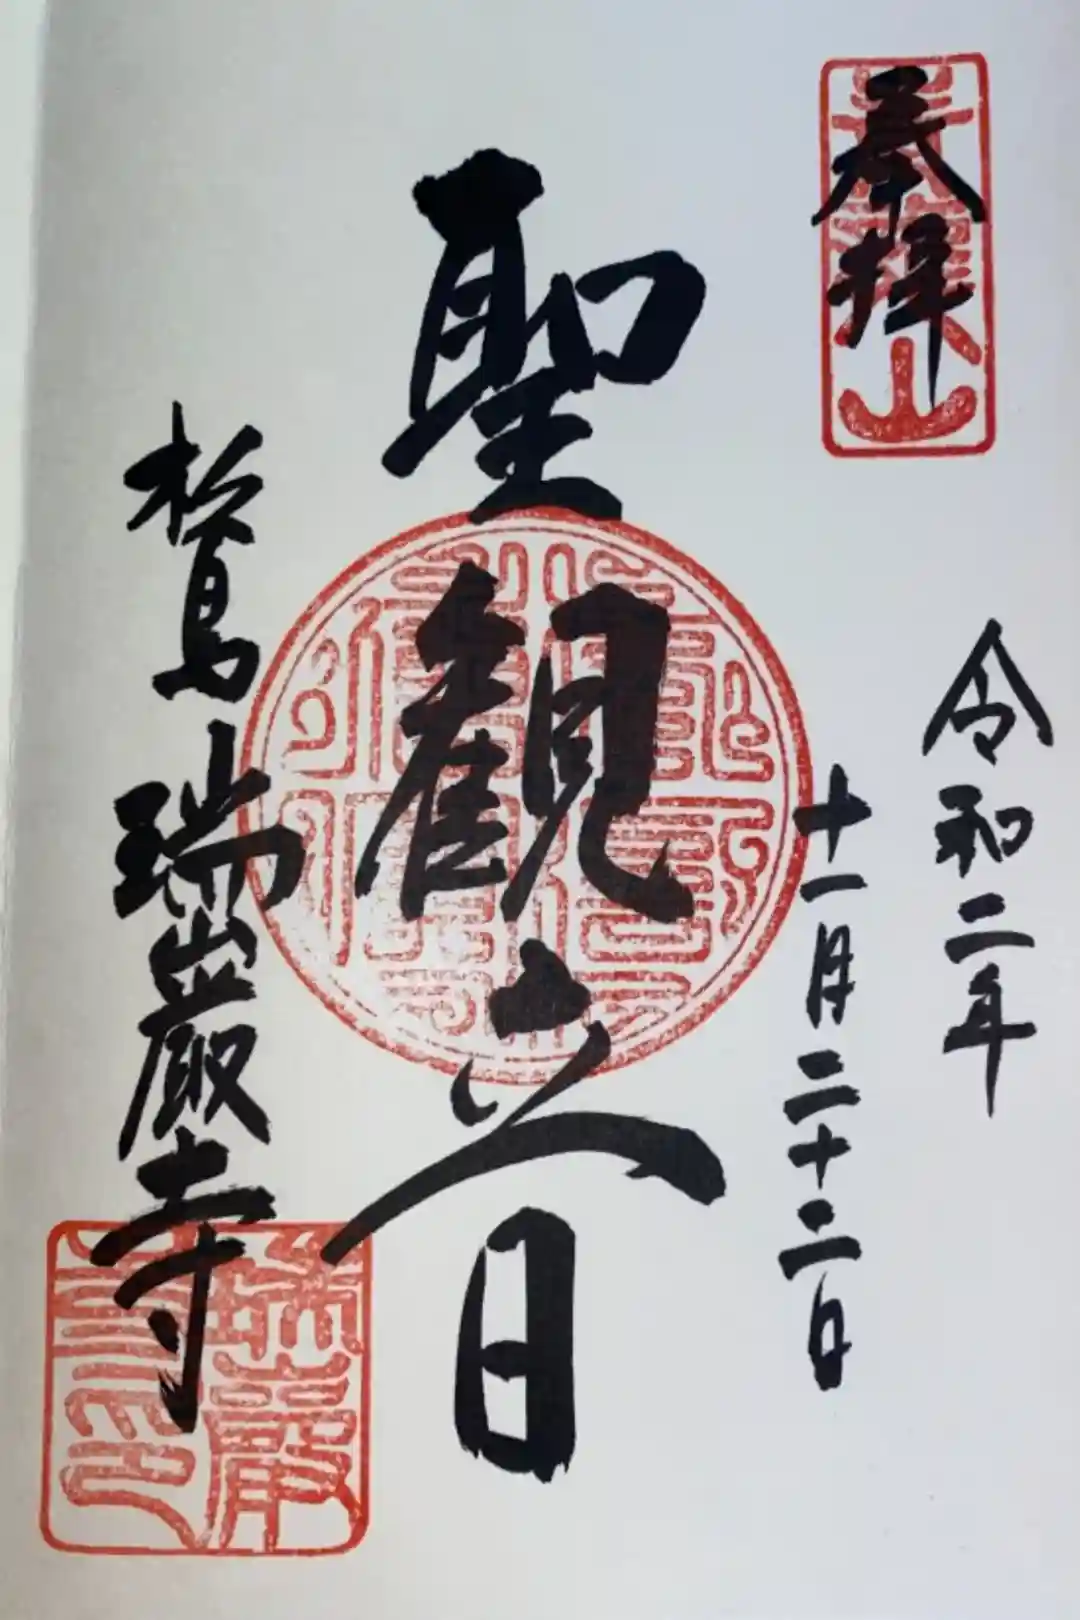 奉拝
令和二年
十一月二十二日
聖観音
松島瑞巌寺